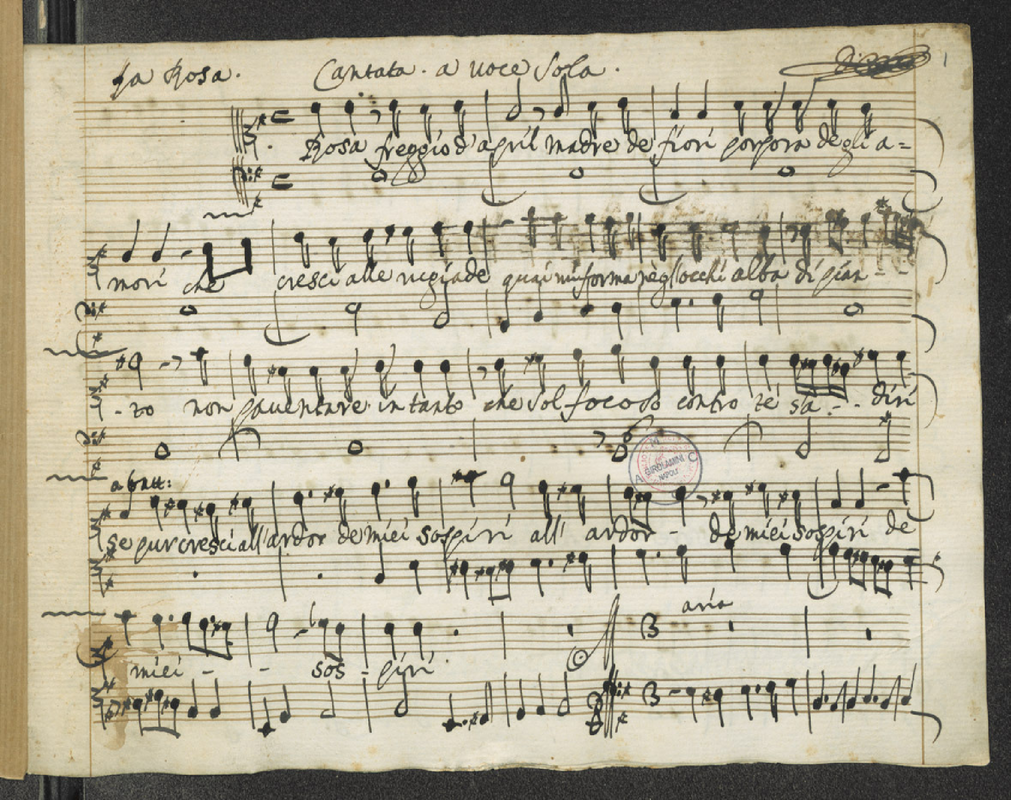 La Rosa. Cantata. a voce sola. 1
Rosa freggio d'april madre de fiori porpora degli a=
mori che cresci alle rugiade quai mi forma negl'occhi alba di pian-
-to non paventare in tanto che sol focoso contro te sa - - diri
a batt:
se pur cresci all'ardor de miei sospiri all' ardor - de miei sospiri de
aria
miei - - sos - piri
GIROLAMINI
NAPOLI